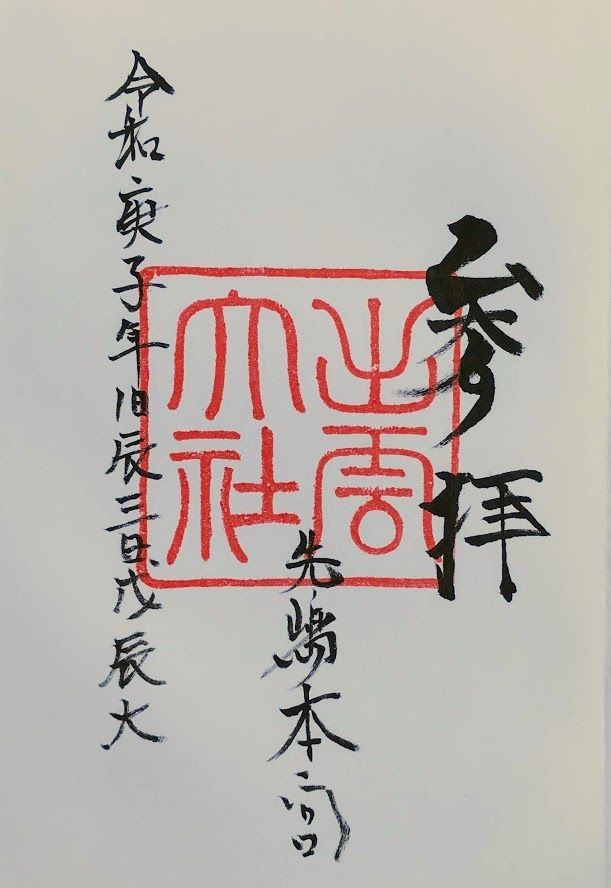 参拝
出雲
大社
先嶋本宮
令和庚子年旧辰三日戊辰大